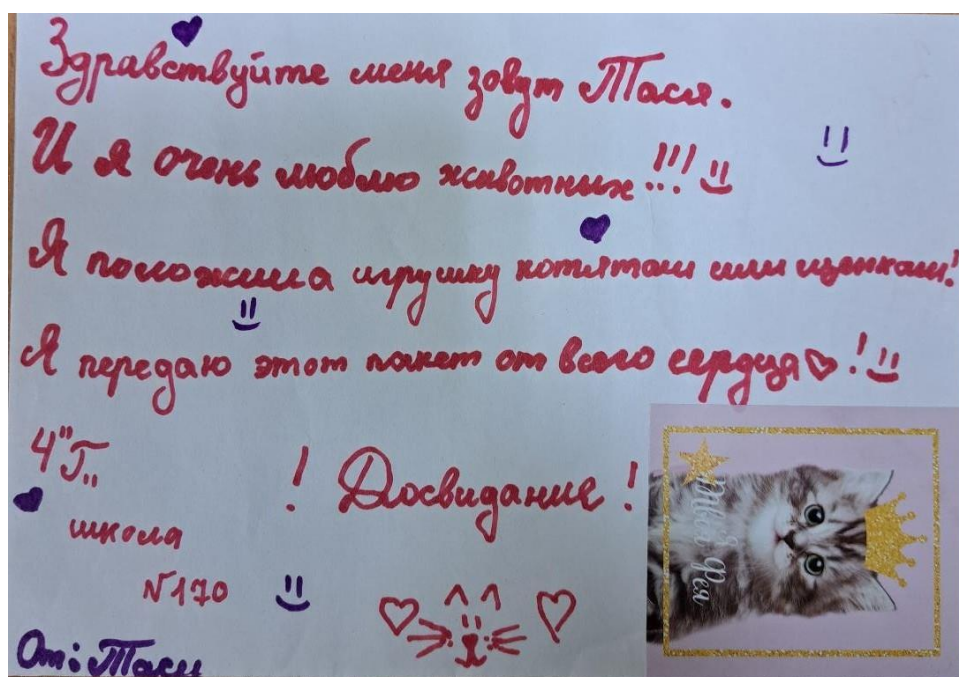 Здравствуйте меня зовут Тася.
И я очень люблю животных!!!
Я положила игрушку котятам или щенкам!
Я передаю этот пакет от всего сердца!
4"Г"
! Досвидание!
школа
№170
От: Таси
Фея